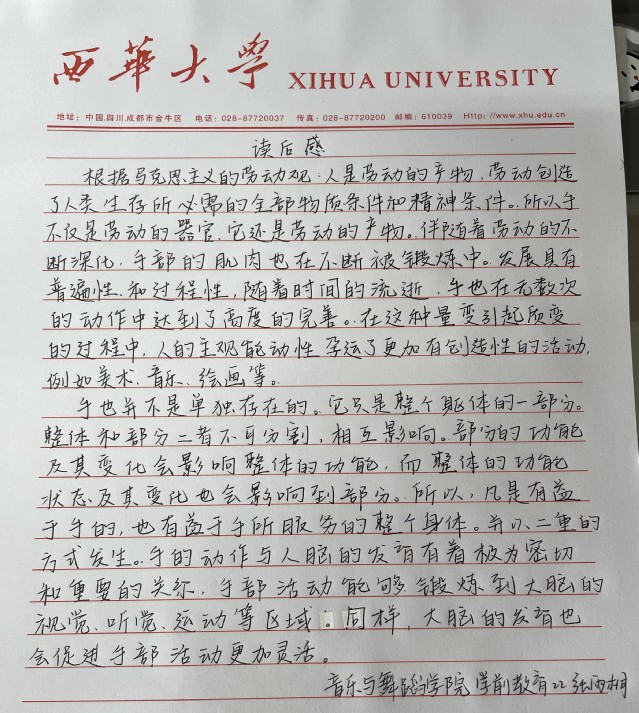 西華大學 XIHUA UNIVERSITY
地址：中国.四川.成都市金牛区 电话：028-87720037 传真：028-87720200 邮编：610039 Http://www.xhu.edu.cn
读后感
根据马克思主义的劳动观：人是劳动的产物，劳动创造
了人类生存所必需的全部物质条件和精神条件。所以手
不仅是劳动的器官，它还是劳动的产物。伴随着劳动的不
断深化，手部的肌肉也在不断被锻炼中。发展具有
普遍性、和过程性，随着时间的流逝，手也在无数次
的动作中达到了高度的完善。在这种量变引起质变
的过程中，人的主观能动性孕运了更加有创造性的活动，
例如美术、音乐、绘画等。
手也并不是单独存在的。它只是整个躯体的一部分。
整体和部分二者不可分割，相互影响。部分的功能
及其变化会影响整体的功能，而整体的功能
状态及其变化也会影响到部分。所以，凡是有益
于手的，也有益于手所服务的整个身体。并以二重的
方式发生。手的动作与人脑的发育有着极为密切
和重要的关系，手部活动能够锻炼到大脑的
视觉、听觉、运动等区域。同样，大脑的发育也
会促进手部活动更加灵活。
音乐与舞蹈学院 学前教育22 张雨桐